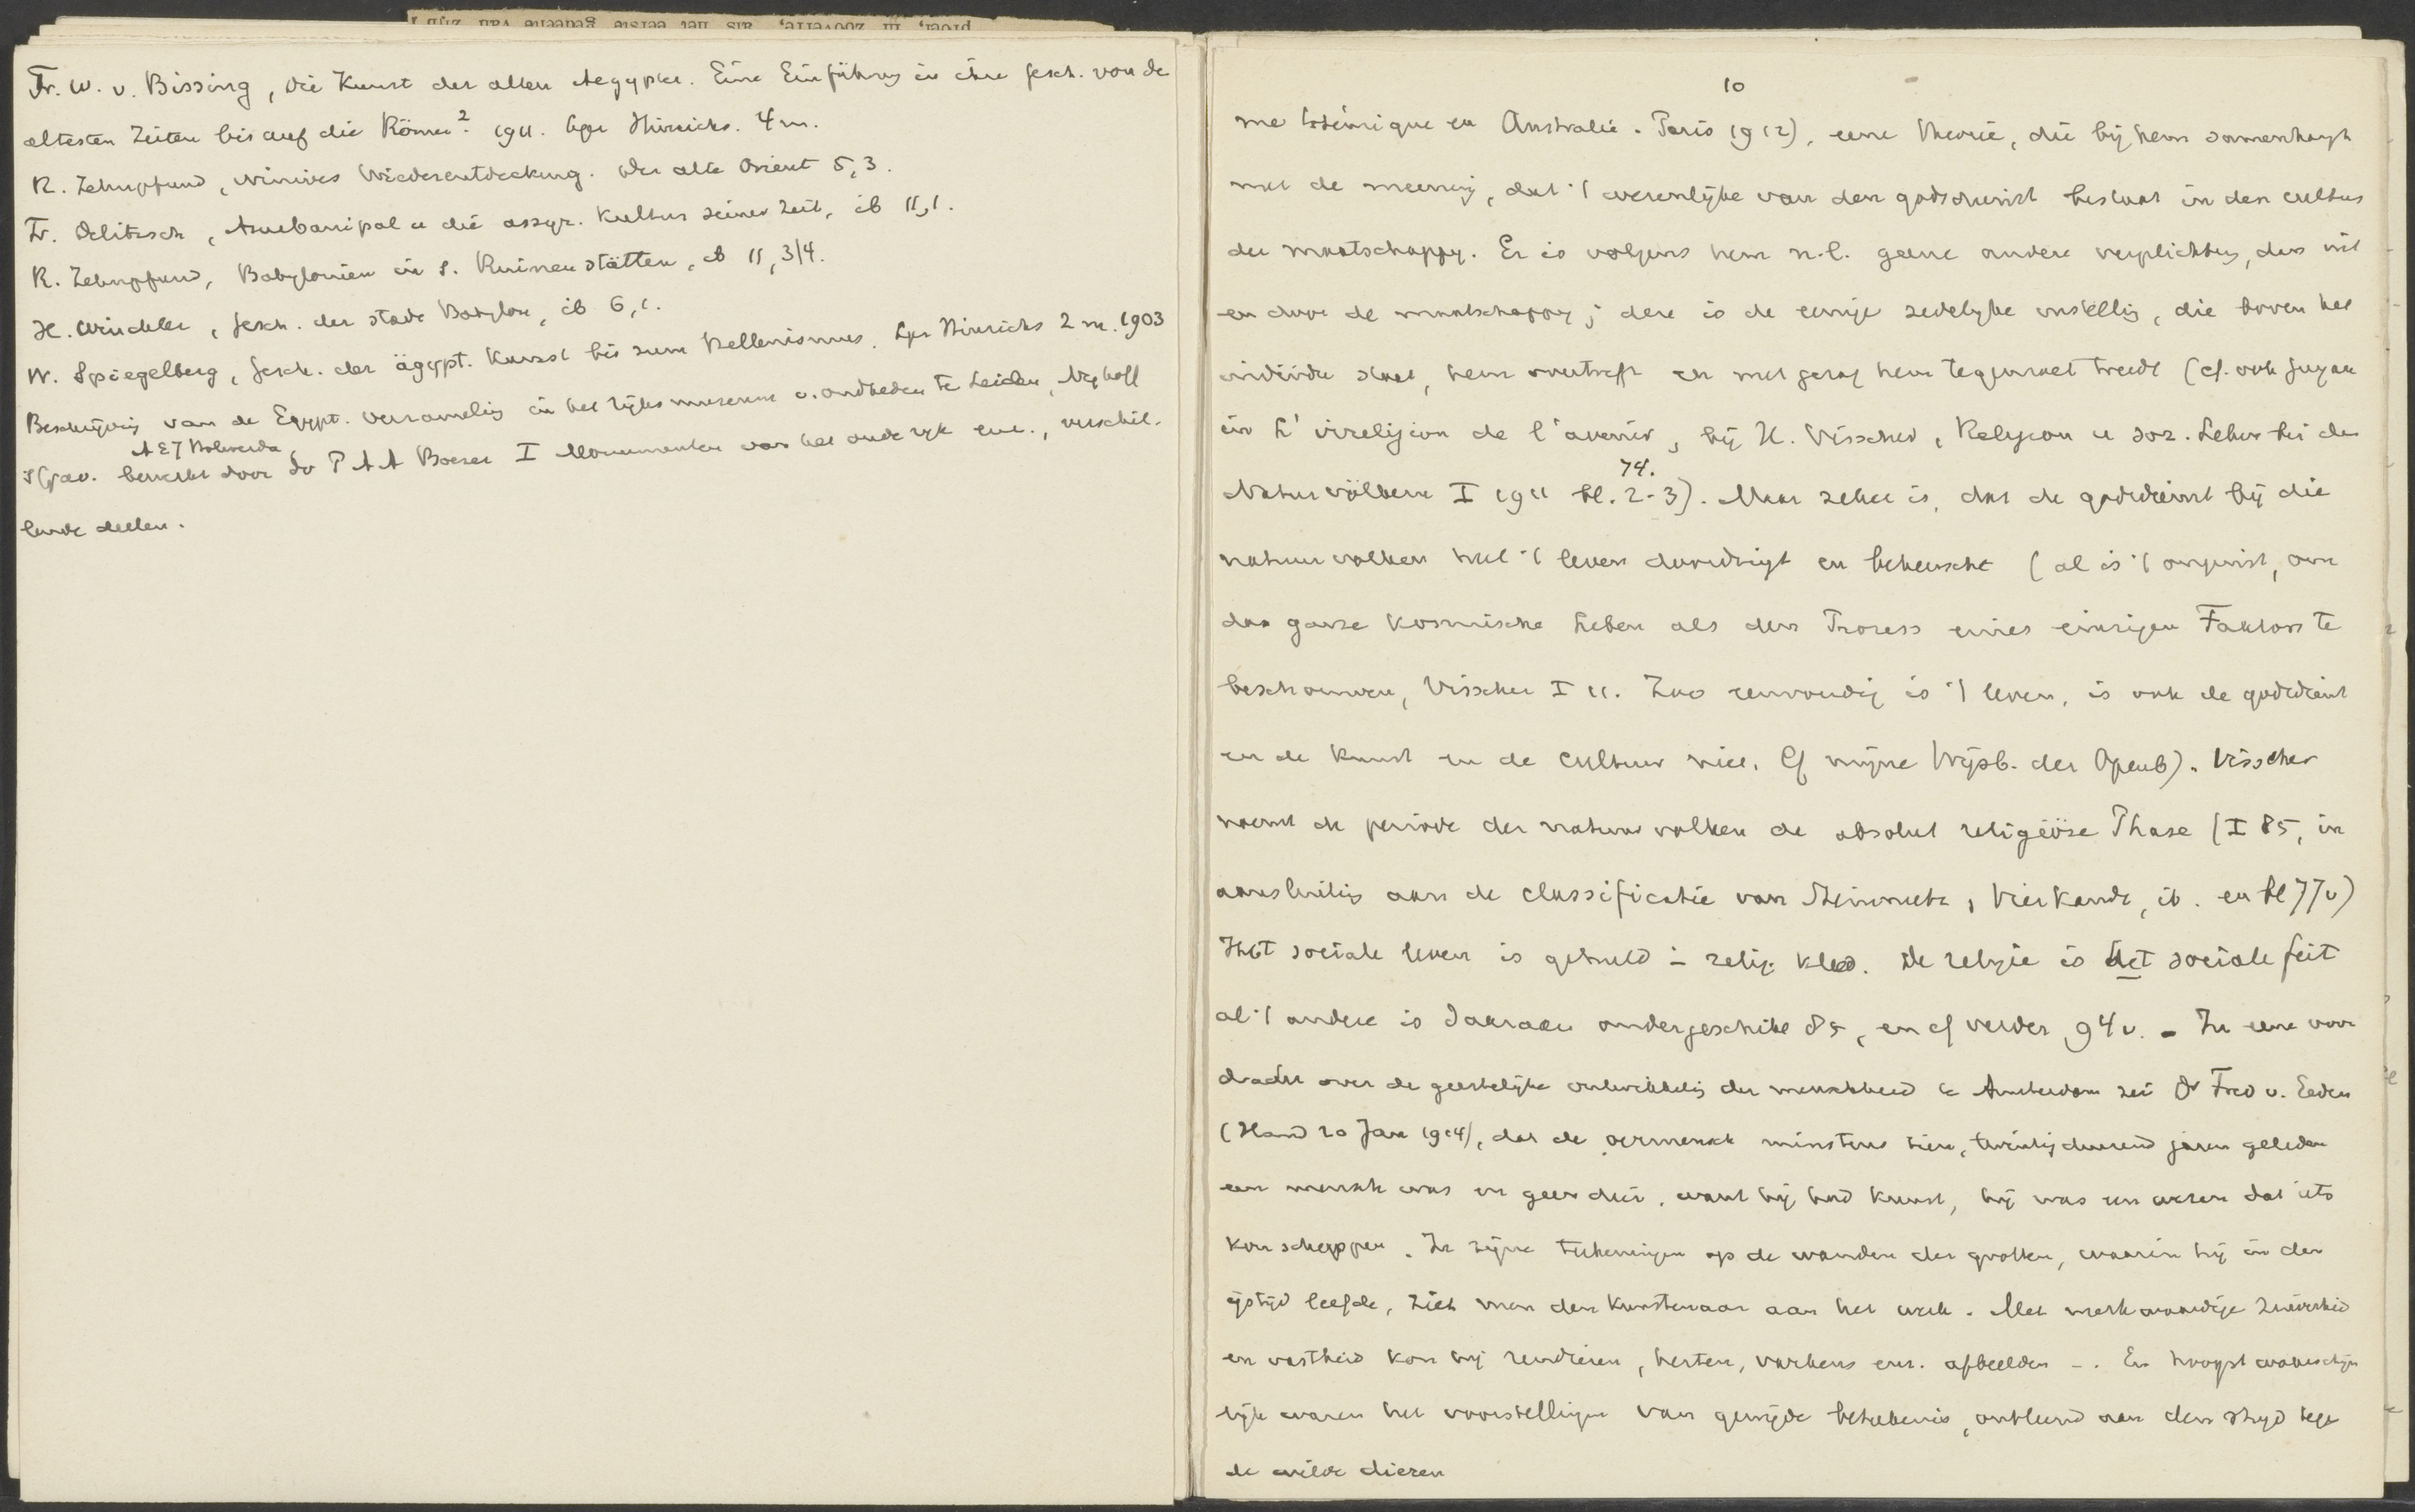 Fr. W. v. Bissing, Die Kunst der alten Aegypter. Eine Einführung in ihre Gesch. von de
altesten Zeiten bis auf die Römer². 1911. Lpz Hinrichs. 4 m.
R. Zehnpfund, Ninives Wiederentdeckung. Der alte Orient 5,3.
Fr. Delitzsch, Asurbanipal u die assyr. Kultur seiner Zeit, ib 11,1.
R. Zehnpfund, Babylonien in s. Ruinenstätten, ib 11, 3/4.
H. Winckler, Gesch. der Stadt Babylon, ib 6,1.
W. Spiegelberg, Gesch. der ägypt. Kunst bis zum Hellenismus. Lpz Hinrichs 2 m. 1903
Beschrijving van de Egypt. verzameling in het rijksmuseum v. oudheden te Leiden, Nijhoff
A E J Holwerda
's Grav. bewerkt door Dr P A A Boeser I Monumenten van het oude rijk enz., verschil-
lende deelen.
10
me totémique en Australie. Paris 1912), eene theorie, die bij hem samenhangt
met de meening, dat 't wezenlijke van den godsdienst bestaat in den cultus
der maatschappij. Er is volgens hem n.l. geene andere verplichting, dan uit
en door de maatschappij; deze is de eenige zedelijke instelling, die boven het
individu staat, hem overtreft en met gezag hem tegemoet treedt (cf. ook Guyau
in L'irreligion de l'avenir, bij H. Visscher, Religion u soz. Leben bei den
74.
Naturvölkern I 1911 bl. 2-3). Maar zeker is, dat de godsdienst bij die
natuurvolken heel 't leven doordringt en beheerscht (al is 't onjuist, om
das ganze kosmische Leben als den Prozess eines einzigen Faktors te
beschouwen, Visscher I 11. Zoo eenvoudig is 't leven, is ook de godsdienst
en de kunst en de cultuur niet. Cf mijne Wijsb. der Openb). Visscher
noemt de periode der natuurvolken de absolut religiöse Phase (I 85, in
aansluiting aan de classificatie van Steinmetz, Vierkandt, ib. en bl 77v)
Het sociale leven is gehuld in relig. kleed. De religie is het sociale feit
al 't andere is daaraan ondergeschikt 85, en cf verder 94v. - In eene voor
dracht over de geestelijke ontwikkeling der menschheid te Amsterdam zei Dr Fred v. Eeden
(Hand 20 Jan 1914), dat de oermensch minstens tien, twintigduizend jaren geleden
een mensch was en geen dier, want hij had kunst, hij was een wezen dat iets
kon scheppen. In zijne teekeningen op de wanden der grotten, waarin hij in den
ijstijd leefde, ziet men den kunstenaar aan het werk. Met merkwaardige zuiverheid
en vastheid kon hij rendieren, herten, varkens enz. afbeelden -. En hoogst waarschijn
lijk waren het voorstellingen van gewijde beteekenis, ontleend aan den strijd tegen
de wilde dieren